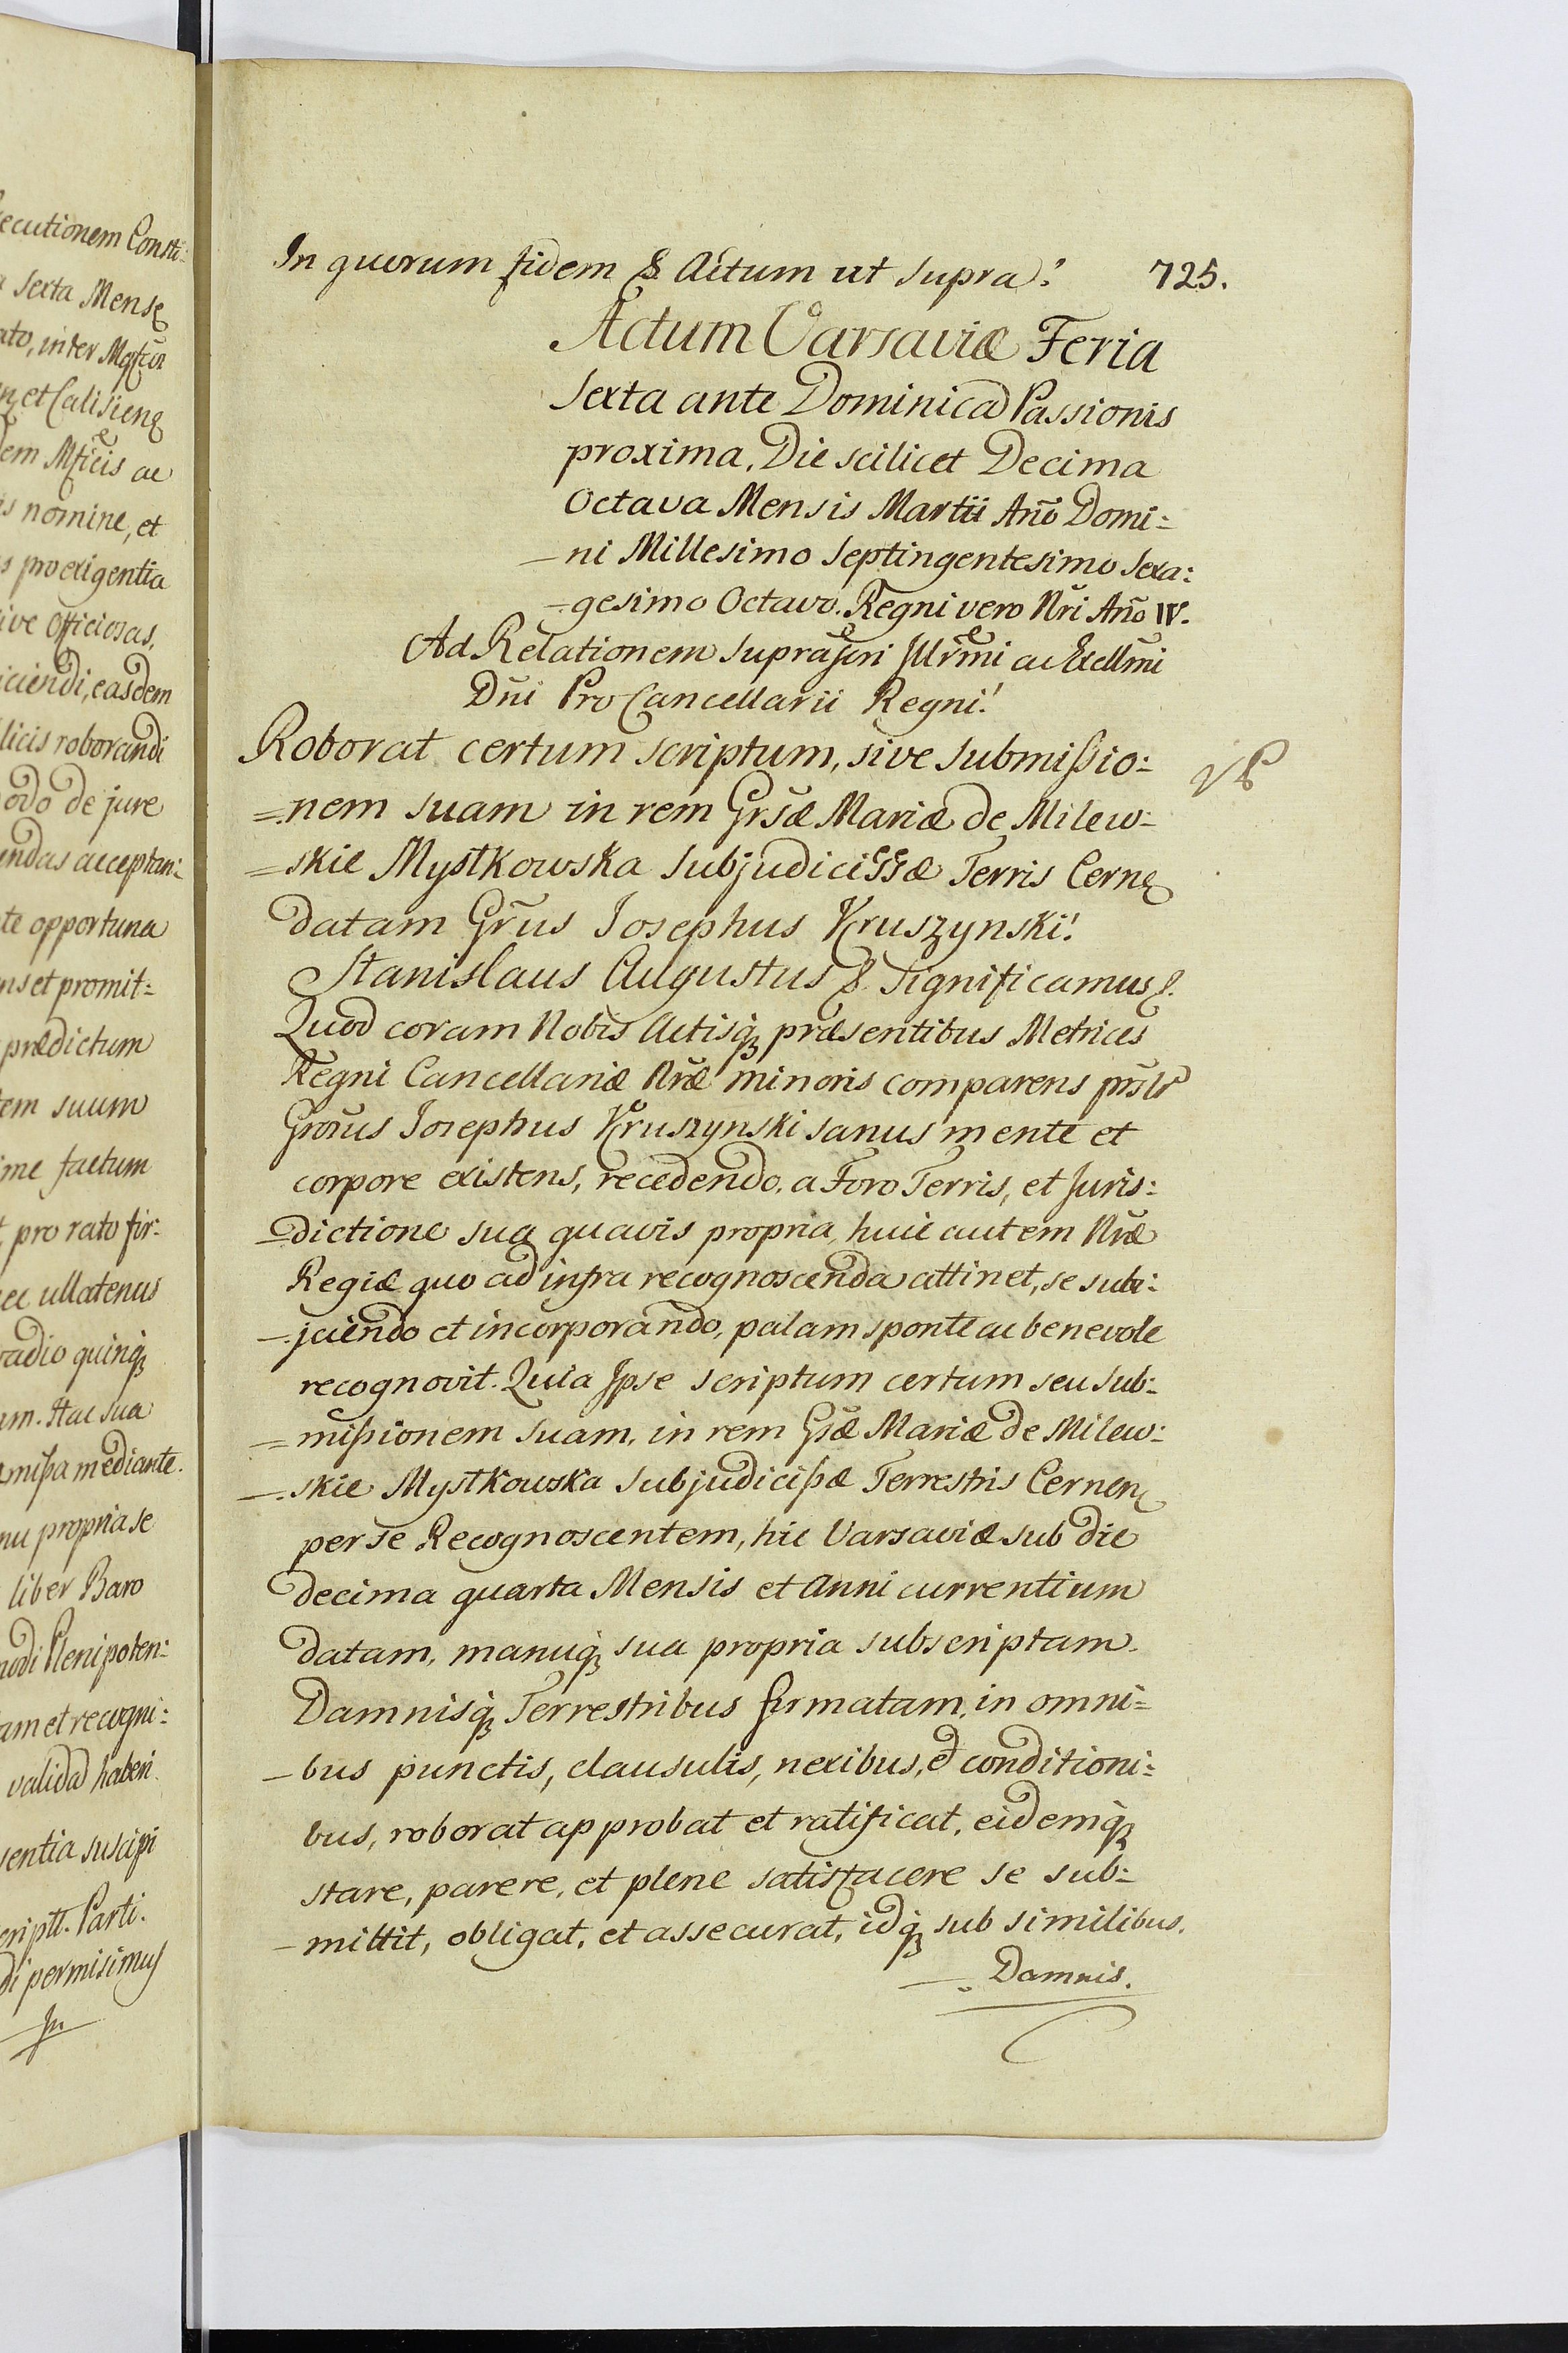 ecutionem Consti:
sexta Mense
ato, inter
et Calisiens
nomine, et
pro exigentia
ive Officiosas,
iciendi, easdem
licis roborandi
odo de jure
endas acceptan:
te opportuna
ns et promit=
prædictum
em suum
me factum
pro rato fir:
ec ullatenus
radio quinq́
um. Hac sua
mißa mediante.
nu propria se
liber Baro
modi Plenipoten:
am et recogni:
valida haberi
sentia suscipi
criptt. Parti.
di permisimus
In
In quorum fidem & Actum ut supra. 725.
Actum Varsaviæ Feria
Sexta ante Dominica Passionis
proxima, Die scilicet Decima
Octava Mensis Martii Año Domi=
–ni Millesimo Septingentesimo Sexa:
–gesimo Octavo. Regni vero Nři Año IV.
Ad Relationem Supraſcri Jllřmi ac Excllmi
Dñi ProCancellarii Regni!
Roborat certum scriptum, sive submißio:
=nem suam in rem Grsæ Mariæ de Milew=
=skie Mystkowska Subjudicissæ Terris Cerne
datam Gřus Josephus Kruszynski!
Stanislaus Augustus &. Significamus &.
Quod coram Nobis Actisq́ præsentibus Metrices
Regni Cancellariæ Nřæ minoris comparens prsltr
Grosus Josephus Kruszynski sanus mente et
corpore existens, recedendo, a Foro Terris, et Juris:
–dictione sua quavis propria, huic autem Nřæ
Regiæ quo ad infra recognoscenda attinet, se subi:
–jciendo et incorporando, palam sponte ac benevole
recognovit. Quia Jpse scriptum certum seu sub:
=mißionem suam, in rem Gsæ Mariæ de Milew:
–skie Mystkowska Subjudicißæ Terrestris Cernen
per se Recognoscentem, hic Varsaviæ sub die
decima quarta Mensis et Anni currentium
datam, manuq́ sua propria subscriptam.
Damnisq́ Terrestribus firmatam, in omni=
–bus punctis, clausulis, nexibus, et conditioni:
bus, roborat approbat et ratificat, eidemq́
stare, parere, et plene satisfacere se sub:
–mittit, obligat, et assecurat, idq́ sub similibus.
Damnis.